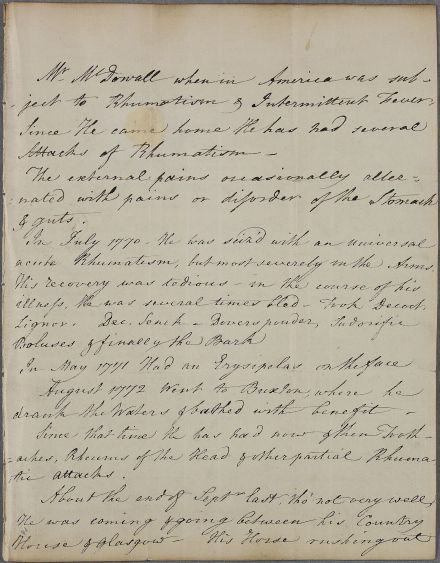 Mr. McDowall when in America was sub-
-ject to Rhumatism & Intermittent Fever,
Since He came home He has had several
Attacks of Rhumatism –
The external pains occasionally alter-
-nated with pains or disorder of the Stomach
& guts.
In July 1770. He was seiz'd with an universal
acute Rhumatism, but most severely in the Arms,
His recovery was tedious – in the course of his
illness, He was several times bled – Took Decoct.
Lignor. Dec. Senek – Doverspouder, Sudorific
Boluses & finally the Bark
In May 1771 Had an Erysipelas on the face
August 1772 Went to Buxton, where he
drank the Waters & bathed with benefit –
Since that time He has had now & then Tooth-
-aches, Rheums of the Head & other partial Rhuma
tic attacks.
About the end of Septr. last, tho' not very well,
He was coming & going between his Country
House & Glasgow – His Horse rushing out